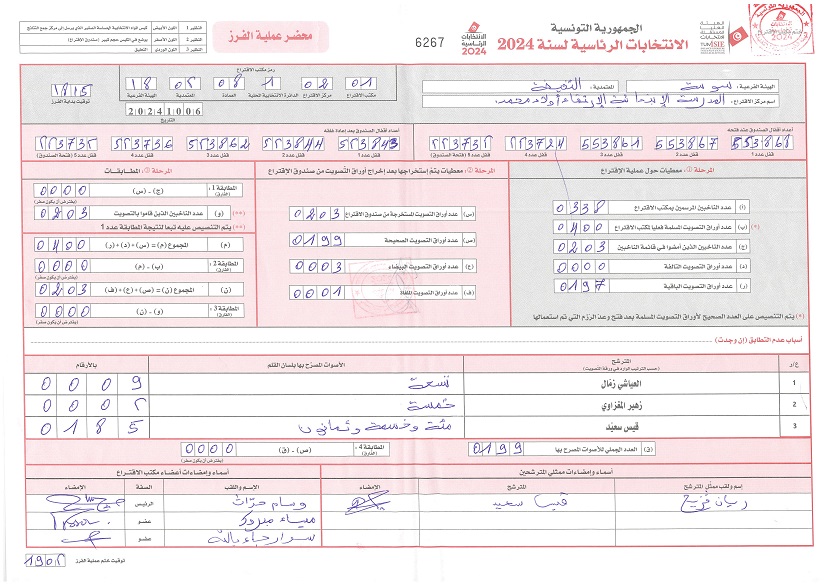 الجمهورية التونسية
الانتخابات الرئاسية لسنة 2024
6267
الانتخابات الرئاسية 2024
محضر عملية الفرز
النظير 1 اللون الأبيض
النظير 2 اللون الأصفر
النظير 3 اللون الوردي
التعليق
الهيئة الفرعية: سوسة المعتمدية: النفيضة
اسم مركز الاقتراع: المدرسة الإبتدائية الإرتقاء أولاد محمد
رمز مكتب الاقتراع
01 02 1 08 05 18
مكتب الاقتراع مركز الاقتراع الدائرة الانتخابية المحلية العمادة المعتمدية الهيئة الفرعية
20241006
التاريخ
1815
توقيت بداية الفرز
أعداد أقفال الصندوق عند فتحه
553868 553867 553861 553724 553735
قفل عدد 1 قفل عدد 2 قفل عدد 3 قفل عدد 4 قفل عدد 5 (فتحة الصندوق)
أعداد أقفال الصندوق بعد إعادة غلقه
553843 553844 553862 553736 553735
قفل عدد 1 قفل عدد 2 قفل عدد 3 قفل عدد 4 قفل عدد 5 (فتحة الصندوق)
المرحلة 1: معطيات حول عملية الاقتراع
(أ) عدد الناخبين المرسمين بمكتب الاقتراع 0338
(ب) عدد أوراق التصويت المسلمة فعليا لمكتب الاقتراع (*) 0400
(ج) عدد الناخبين الذين أمضوا في قائمة الناخبين 0203
(د) عدد أوراق التصويت التالفة 0000
(ر) عدد أوراق التصويت الباقية 0197
(*) يتم التنصيص على العدد الصحيح لأوراق التصويت المسلمة بعد فتح وعدّ الرزم التي تم استعمالها
المرحلة 2: معطيات يتم إستخراجها بعد إخراج أوراق التصويت من صندوق الاقتراع
(س) عدد أوراق التصويت المستخرجة من صندوق الاقتراع 0203
(ص) عدد أوراق التصويت الصحيحة 0199
(ع) عدد أوراق التصويت البيضاء 0003
(ف) عدد أوراق التصويت الملغاة 0001
المرحلة 3: المطابقات
المطابقة 1: (الفارق) (ج) - (س) 0000
(يفترض أن يكون صفر)
(**) (و) عدد الناخبين الذين قاموا بالتصويت 0203
(**) يتم التنصيص عليه تبعا لنتيجة المطابقة عدد 1
(م) المجموع (م) = (س) + (د) + (ر) 0400
المطابقة 2: (الفارق) (ب) - (م) 0000
(يفترض أن يكون صفر)
(ن) المجموع (ن) = (ص) + (ع) + (ف) 0203
المطابقة 3: (الفارق) (و) - (ن) 0000
أسباب عدم التطابق (إن وجدت)
ع/ر المترشح الأصوات المصرّح بها بلسان القلم بالأرقام
(حسب الترتيب الوارد في ورقة التصويت)
1 العياشي زمّال تسعة 0009
2 زهير المغزاوي خمسة 0005
3 قيس سعيّد مئة وخمسة وثمانون 0185
(ق) العدد الجملي للأصوات المصرح بها 0199
المطابقة 4: (الفارق) (ص) - (ق) 0000
(يفترض أن يكون صفر)
أسماء وإمضاءات ممثلي المترشحين
إسم ولقب ممثل المترشح المترشح الإمضاء
قيس سعيد
أسماء وإمضاءات أعضاء مكتب الاقتراع
الإسم واللقب الصفة الإمضاء
الرئيس
عضو
عضو
توقيت ختم عملية الفرز 1905